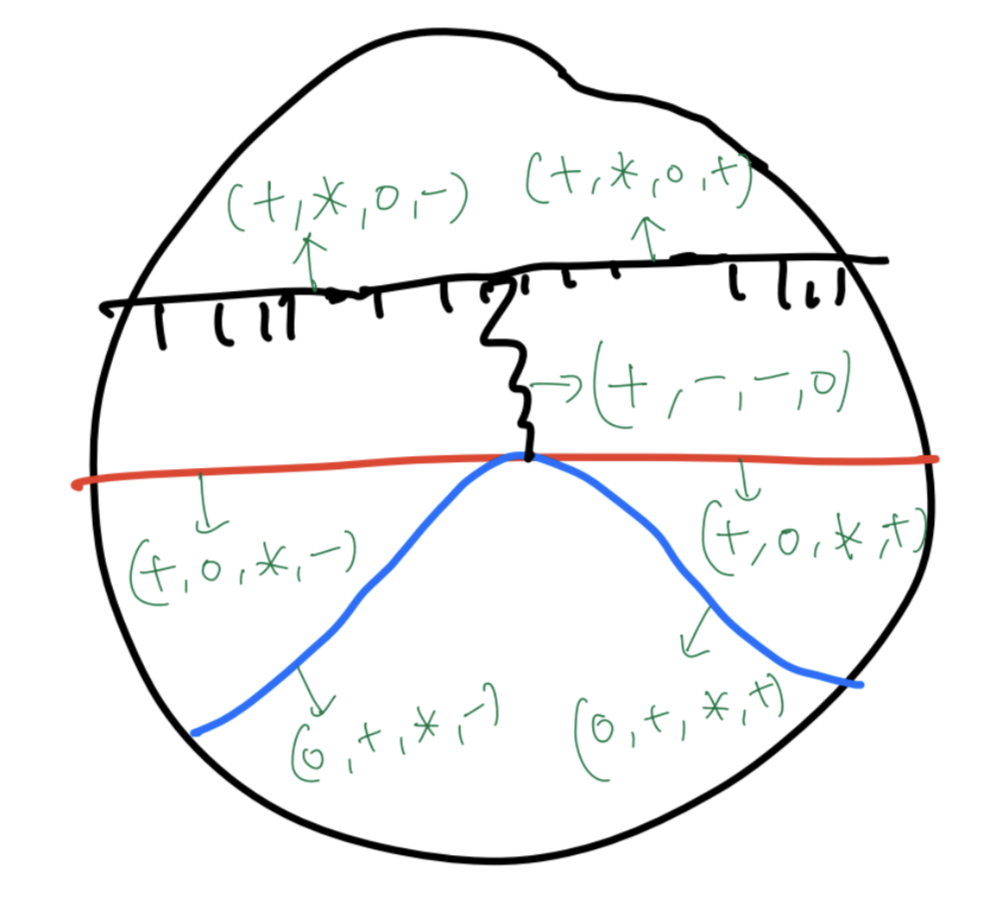 (+,*,0,-)
(+,*,0,+)
(+,-,-,0)
(+,0,*,-)
(+,0,*,+)
(0,+,*,-)
(0,+,*,+)